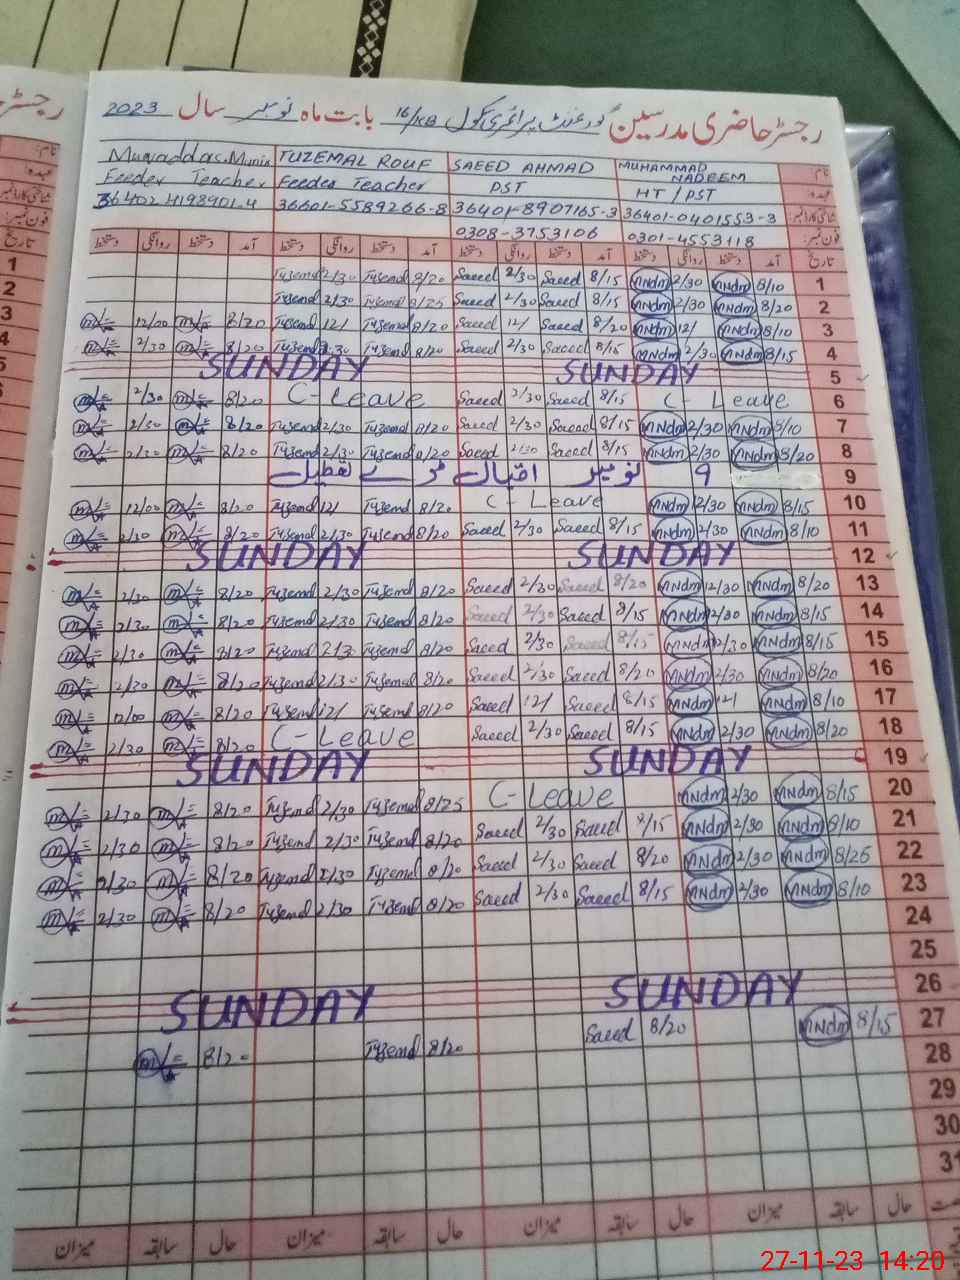 رجسٹر حاضری مدرسین گورنمنٹ پرائمری سکول 16/KB بابت ماہ نومبر سال 2023
Muqaddas Munir TUZEMAL ROUF SAEED AHMAD MUHAMMAD NADEEM نام:
Feeder Teacher Feeder Teacher PST HT / PST عہدہ:
36402 4198901-4 36601-5589266-8 36401-8907165-3 36401-0401553-3 شناختی کارڈ نمبر
0308-3753106 0301-4553118 فون نمبر:
دستخط روانگی دستخط آمد دستخط روانگی دستخط آمد دستخط روانگی دستخط آمد دستخط روانگی دستخط آمد تاریخ
1 Tuzemd 2/30 Tuzemd 8/20 Saeed 2/30 Saeed 8/15 MNdm 2/30 MNdm 8/10 1
2 Tuzemd 2/30 Tuzemd 8/25 Saeed 2/30 Saeed 8/15 MNdm 2/30 MNdm 8/20 2
3 12/00 8/20 Tuzemd 12/ Tuzemd 8/20 Saeed 12/ Saeed 8/20 MNdm 12/ MNdm 8/10 3
4 2/30 8/20 Tuzemd 2/30 Tuzemd 8/20 Saeed 2/30 Saeed 8/15 MNdm 2/30 MNdm 8/15 4
SUNDAY SUNDAY 5
2/30 8/20 C-Leave Saeed 2/30 Saeed 8/15 C- Leave 6
2/30 8/20 Tuzemd 2/30 Tuzemd 8/20 Saeed 2/30 Saeed 8/15 MNdm 2/30 MNdm 8/10 7
2/30 8/20 Tuzemd 2/30 Tuzemd 8/20 Saeed 2/30 Saeed 8/15 MNdm 2/30 MNdm 8/20 8
9 نومبر اقبال ڈے تعطیل 9
12/00 8/20 Tuzemd 12/ Tuzemd 8/20 C-Leave MNdm 2/30 MNdm 8/15 10
2/30 8/20 Tuzemd 2/30 Tuzemd 8/20 Saeed 2/30 Saeed 8/15 MNdm 2/30 MNdm 8/10 11
SUNDAY SUNDAY 12
2/30 8/20 Tuzemd 2/30 Tuzemd 8/20 Saeed 2/30 Saeed 8/20 MNdm 2/30 MNdm 8/20 13
2/30 8/20 Tuzemd 2/30 Tuzemd 8/20 Saeed 2/30 Saeed 8/15 MNdm 2/30 MNdm 8/15 14
2/30 8/20 Tuzemd 2/30 Tuzemd 8/20 Saeed 2/30 Saeed 8/15 MNdm 2/30 MNdm 8/15 15
2/30 8/20 Tuzemd 2/30 Tuzemd 8/20 Saeed 2/30 Saeed 8/20 MNdm 2/30 MNdm 8/20 16
12/00 8/20 Tuzemd 12/ Tuzemd 8/20 Saeed 12/ Saeed 8/15 MNdm 12/ MNdm 8/10 17
2/30 8/20 C-Leave Saeed 2/30 Saeed 8/15 MNdm 2/30 MNdm 8/20 18
SUNDAY SUNDAY 19
2/30 8/20 Tuzemd 2/30 Tuzemd 8/25 C-Leave MNdm 2/30 MNdm 8/15 20
2/30 8/20 Tuzemd 2/30 Tuzemd 8/20 Saeed 2/30 Saeed 8/15 MNdm 2/30 MNdm 8/10 21
2/30 8/20 Tuzemd 2/30 Tuzemd 8/20 Saeed 2/30 Saeed 8/20 MNdm 2/30 MNdm 8/25 22
2/30 8/20 Tuzemd 2/30 Tuzemd 8/20 Saeed 2/30 Saeed 8/15 MNdm 2/30 MNdm 8/10 23
24
25
SUNDAY SUNDAY 26
8/20 Tuzemd 8/20 Saeed 8/20 MNdm 8/15 27
28
29
30
31
میزان سابقہ حال میزان سابقہ حال میزان سابقہ حال میزان سابقہ حال
27-11-23 14:20